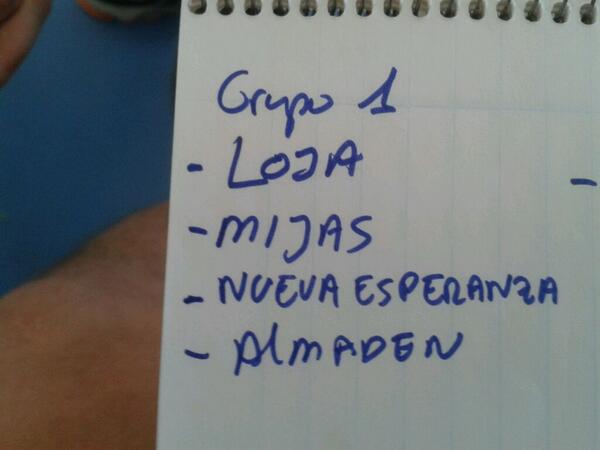 Grupo 1
- LOJA
- MIJAS
- NUEVA ESPERANZA
- AlMADEN
-